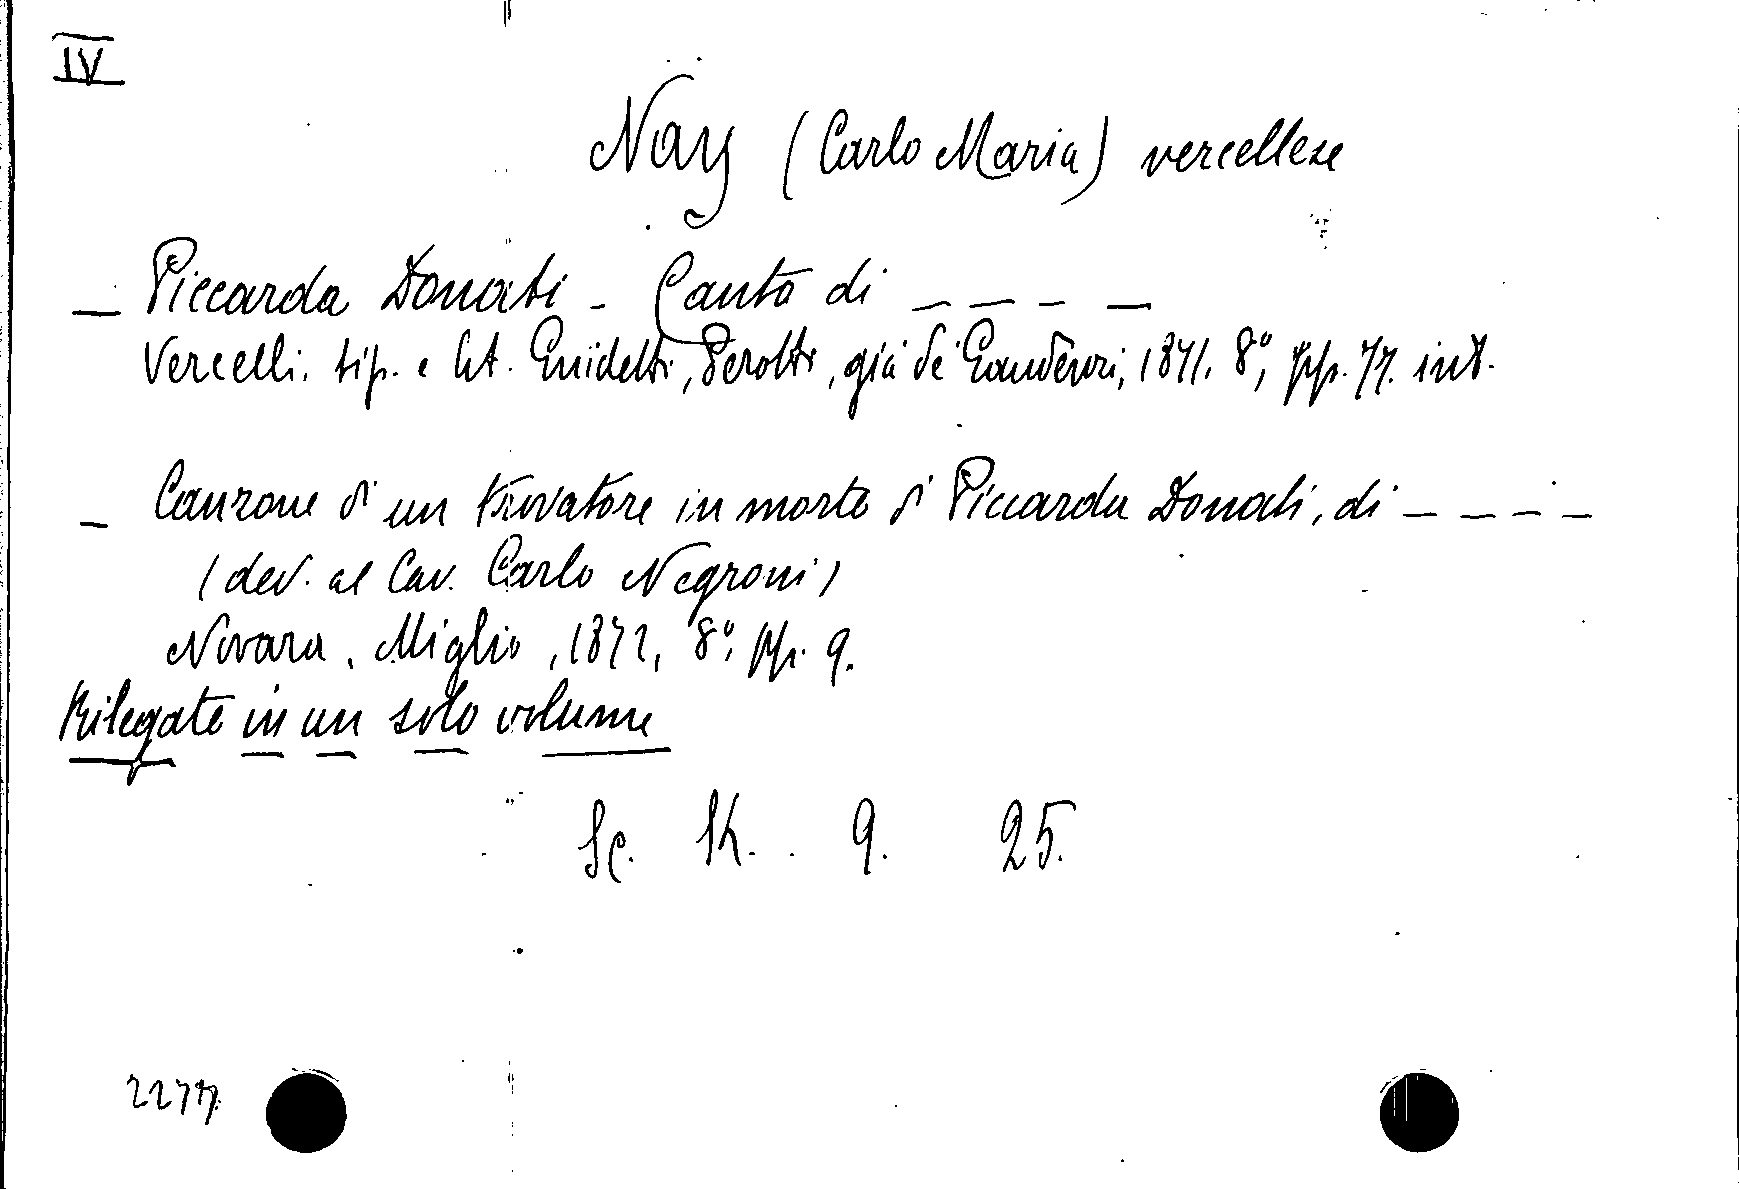 IV
Nay (Carlo Maria) vercellese
_ Piccarda Donati - Canto di _ _ _ _
Vercelli. tip. e lit. Guidetti, Perotti, già De Gaudenzi, 1871. 8º, pp. 77. int.
_ Canzone di un trovatore in morte di Piccarda Donati, di _ _ _ _
(ded. al Cav. Carlo Negroni)
Novara, Miglio, 1872, 8º, pp. 9.
Rilegate in un solo volume
Sc. K. 9. 25.
2277